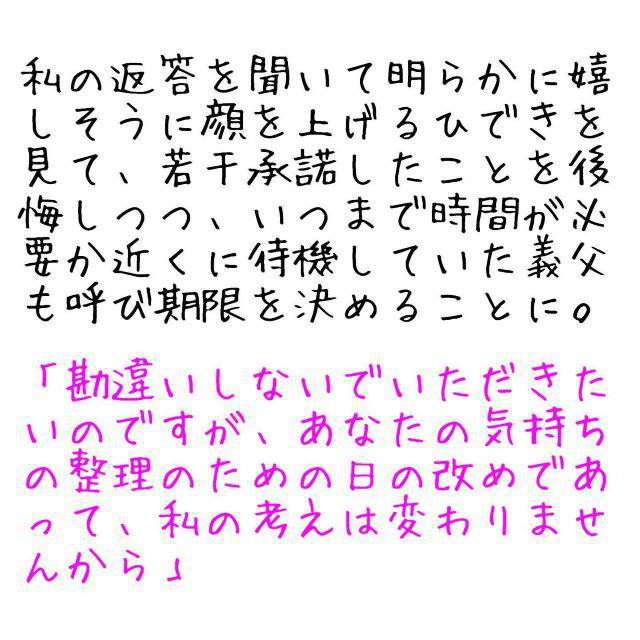 私の返答を聞いて明らかに嬉
しそうに顔を上げるひできを
見て、若干承諾したことを後
悔しつつ、いつまで時間が必
要か近くに待機していた義父
も呼び期限を決めることに。
「勘違いしないでいただきた
いのですが、あなたの気持ち
の整理のための日の改めであ
って、私の考えは変わりませ
んから」